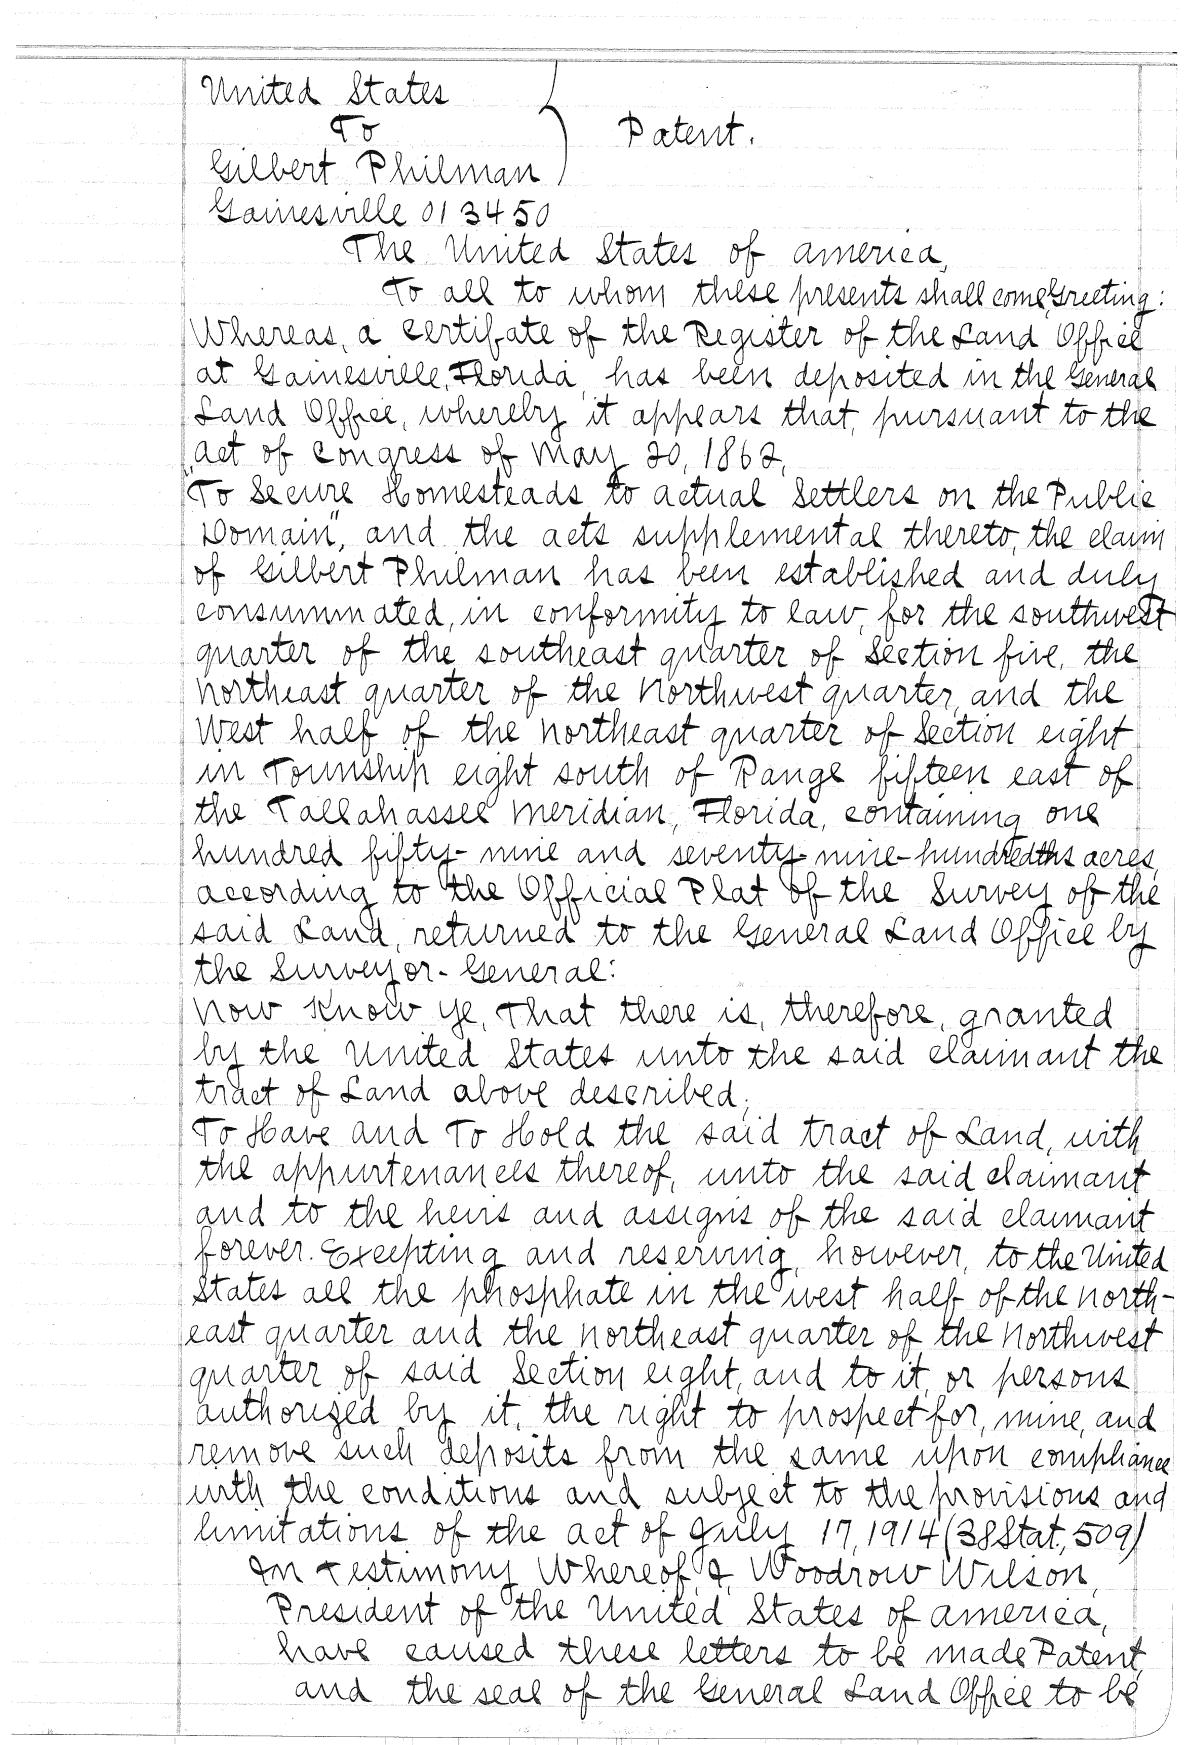 United States
To
Patent.
Gilbert Philman
Gainesville 013450
The United States of america,
To all to whom these presents shall come, Greeting:
Whereas, a certifate of the Register of the Land Office
at Gainesville, Florida, has been deposited in the General
Land Office, whereby it appears that, pursuant to the
act of Congress of May 20, 1862,
"To Secure Homesteads to actual Settlers on the Public
Domain", and the acts supplemental thereto, the claim
of Gilbert Philman has been established and duly
consummated, in conformity to law, for the southwest
quarter of the southeast quarter of Section five, the
northeast quarter of the Northwest quarter, and the
West half of the northeast quarter of Section eight
in Township eight south of Range fifteen east of
the Tallahassee Meridian, Florida, containing one
hundred fifty-nine and seventy-nine-hundredths acres,
according to the Official Plat of the Survey of the
said Land, returned to the General Land Office by
the Surveyor-General:
Now Know Ye, That there is, therefore, granted
by the United States unto the said claimant the
tract of Land above described;
To Have and To Hold the said tract of Land, with
the appurtenances thereof, unto the said claimant
and to the heirs and assigns of the said claimant
forever. Excepting and reserving, however, to the United
States all the phosphate in the west half of the north-
east quarter and the northeast quarter of the Northwest
quarter of said Section eight, and to it, or persons
authorized by it, the right to prospect for, mine, and
remove such deposits from the same upon compliance
with the conditions and subject to the provisions and
limitations of the act of July 17, 1914 (38 Stat., 509)
In Testimony Whereof, I, Woodrow Wilson,
President of the United States of america,
have caused these letters to be made Patent,
and the seal of the General Land Office to be